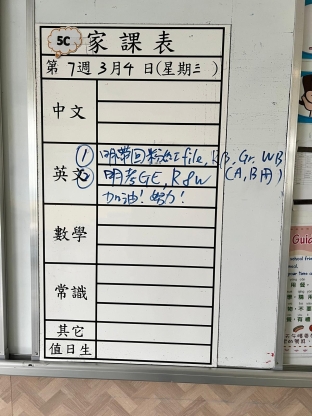 5C 家課表
第7週3月4日(星期三)
中文
英文
① 明帶回粉紅file, RB, Gr. WB
(A,B冊)
② 明考GE, R&W
加油!努力!
數學
常識
其它
值日生
Guid